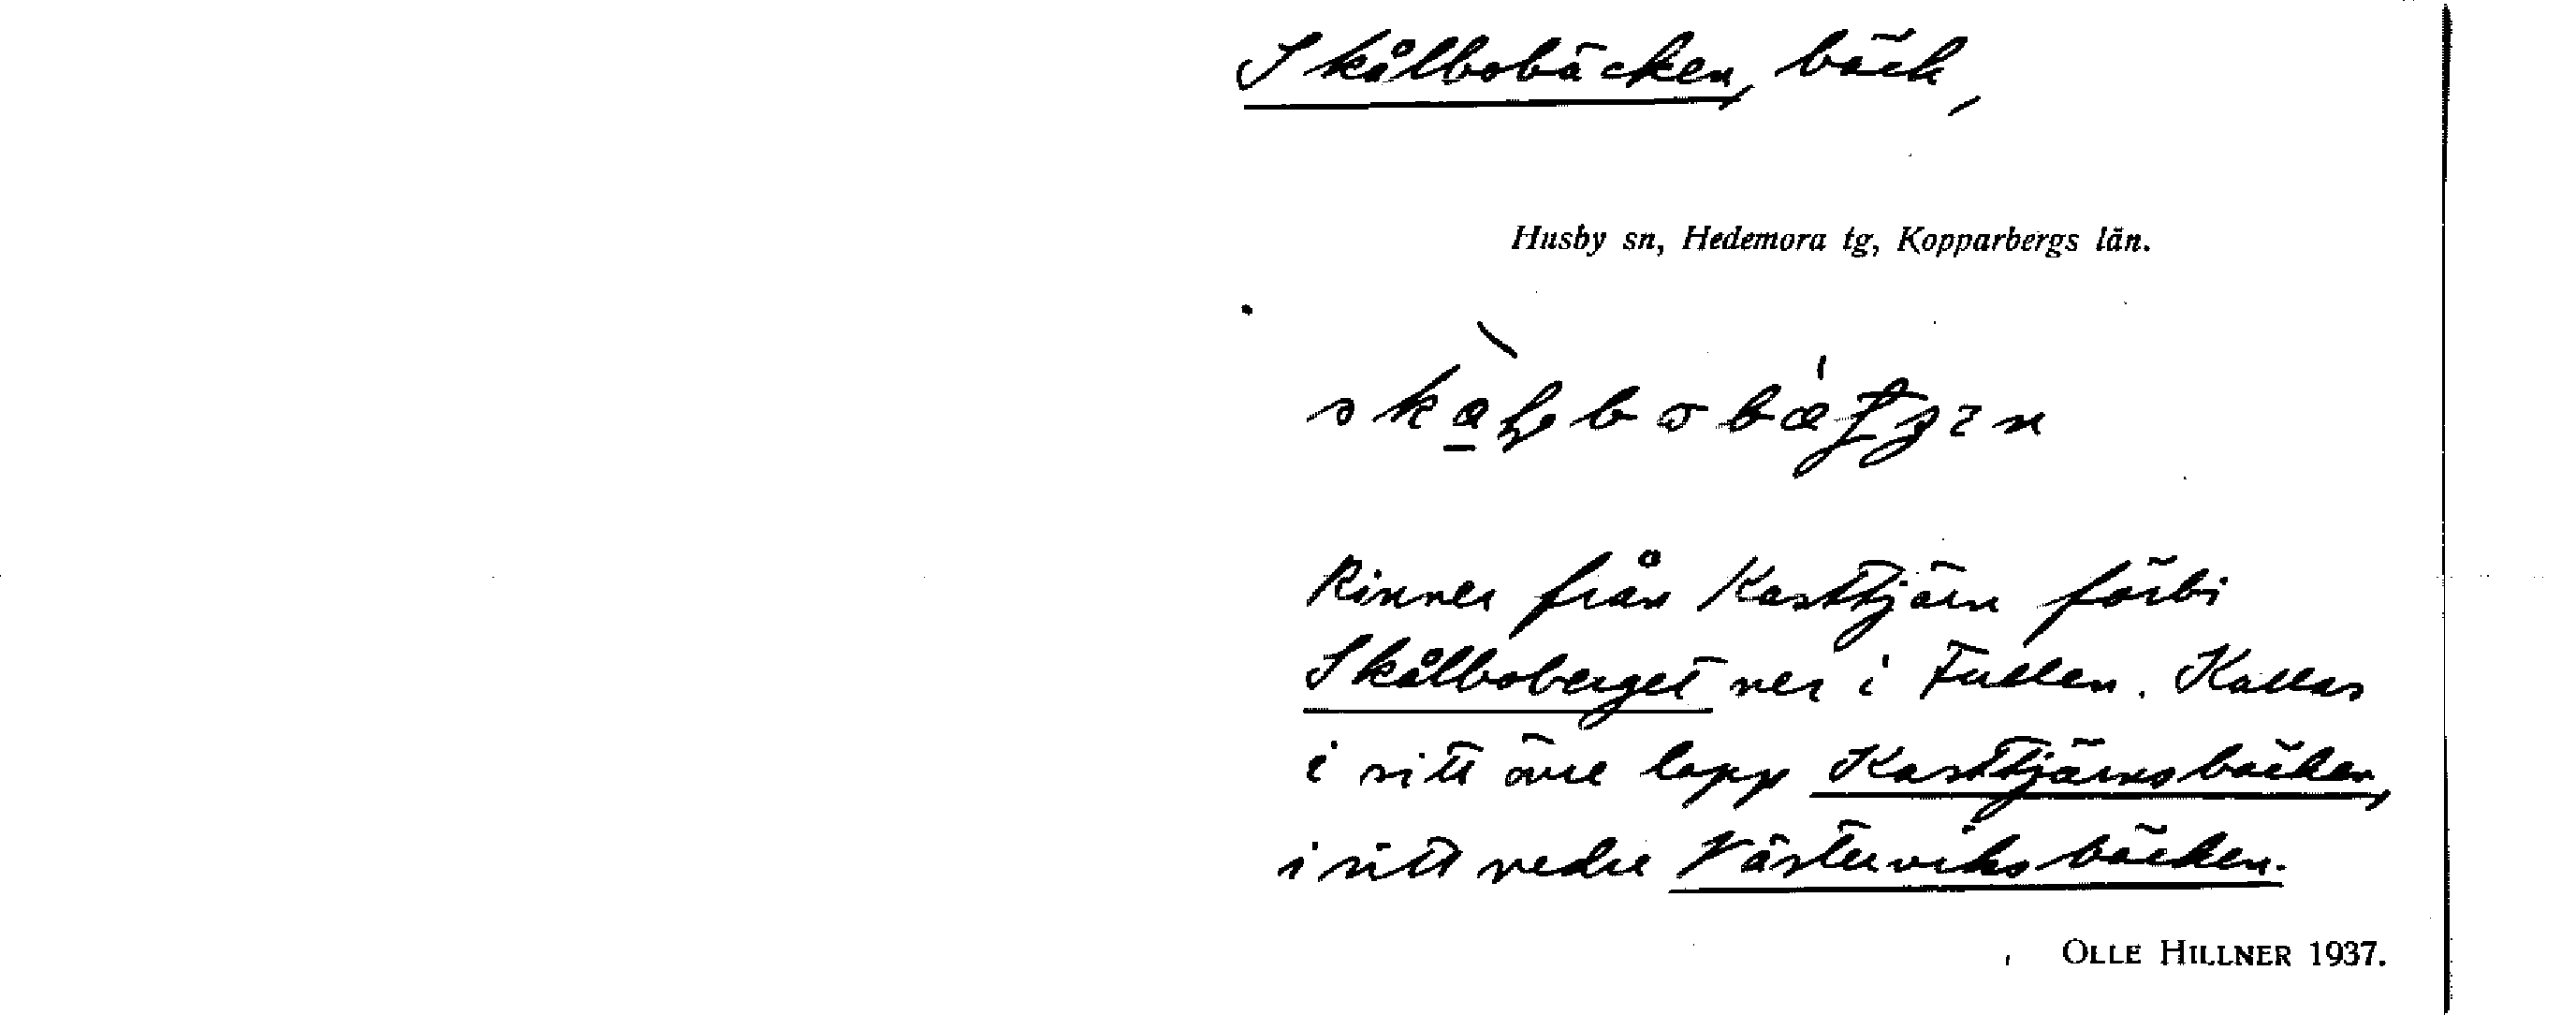 Skålbobäcken, bäck,
Husby sn, Hedemora tg, Kopparbergs län.
Rinner från Kasttjärn förbi
Skålboberget ner i Fullen. Kallas
i sitt övre lopp Kasttjärnsbäcken,
i sitt nedre Västerviksbäcken.
OLLE HILLNER 1937.